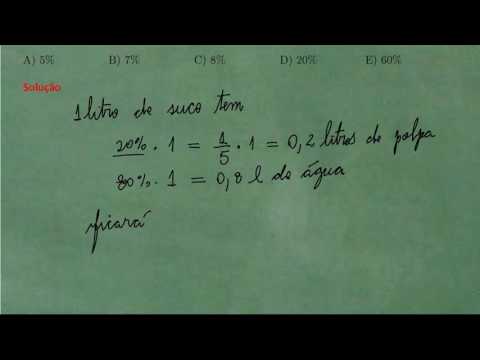 A) 5% B) 7% C) 8% D) 20% E) 60%
Solução
1 litro de suco tem
20% . 1 = 1/5 . 1 = 0,2 litros de polpa
80% . 1 = 0,8 l de água
ficará